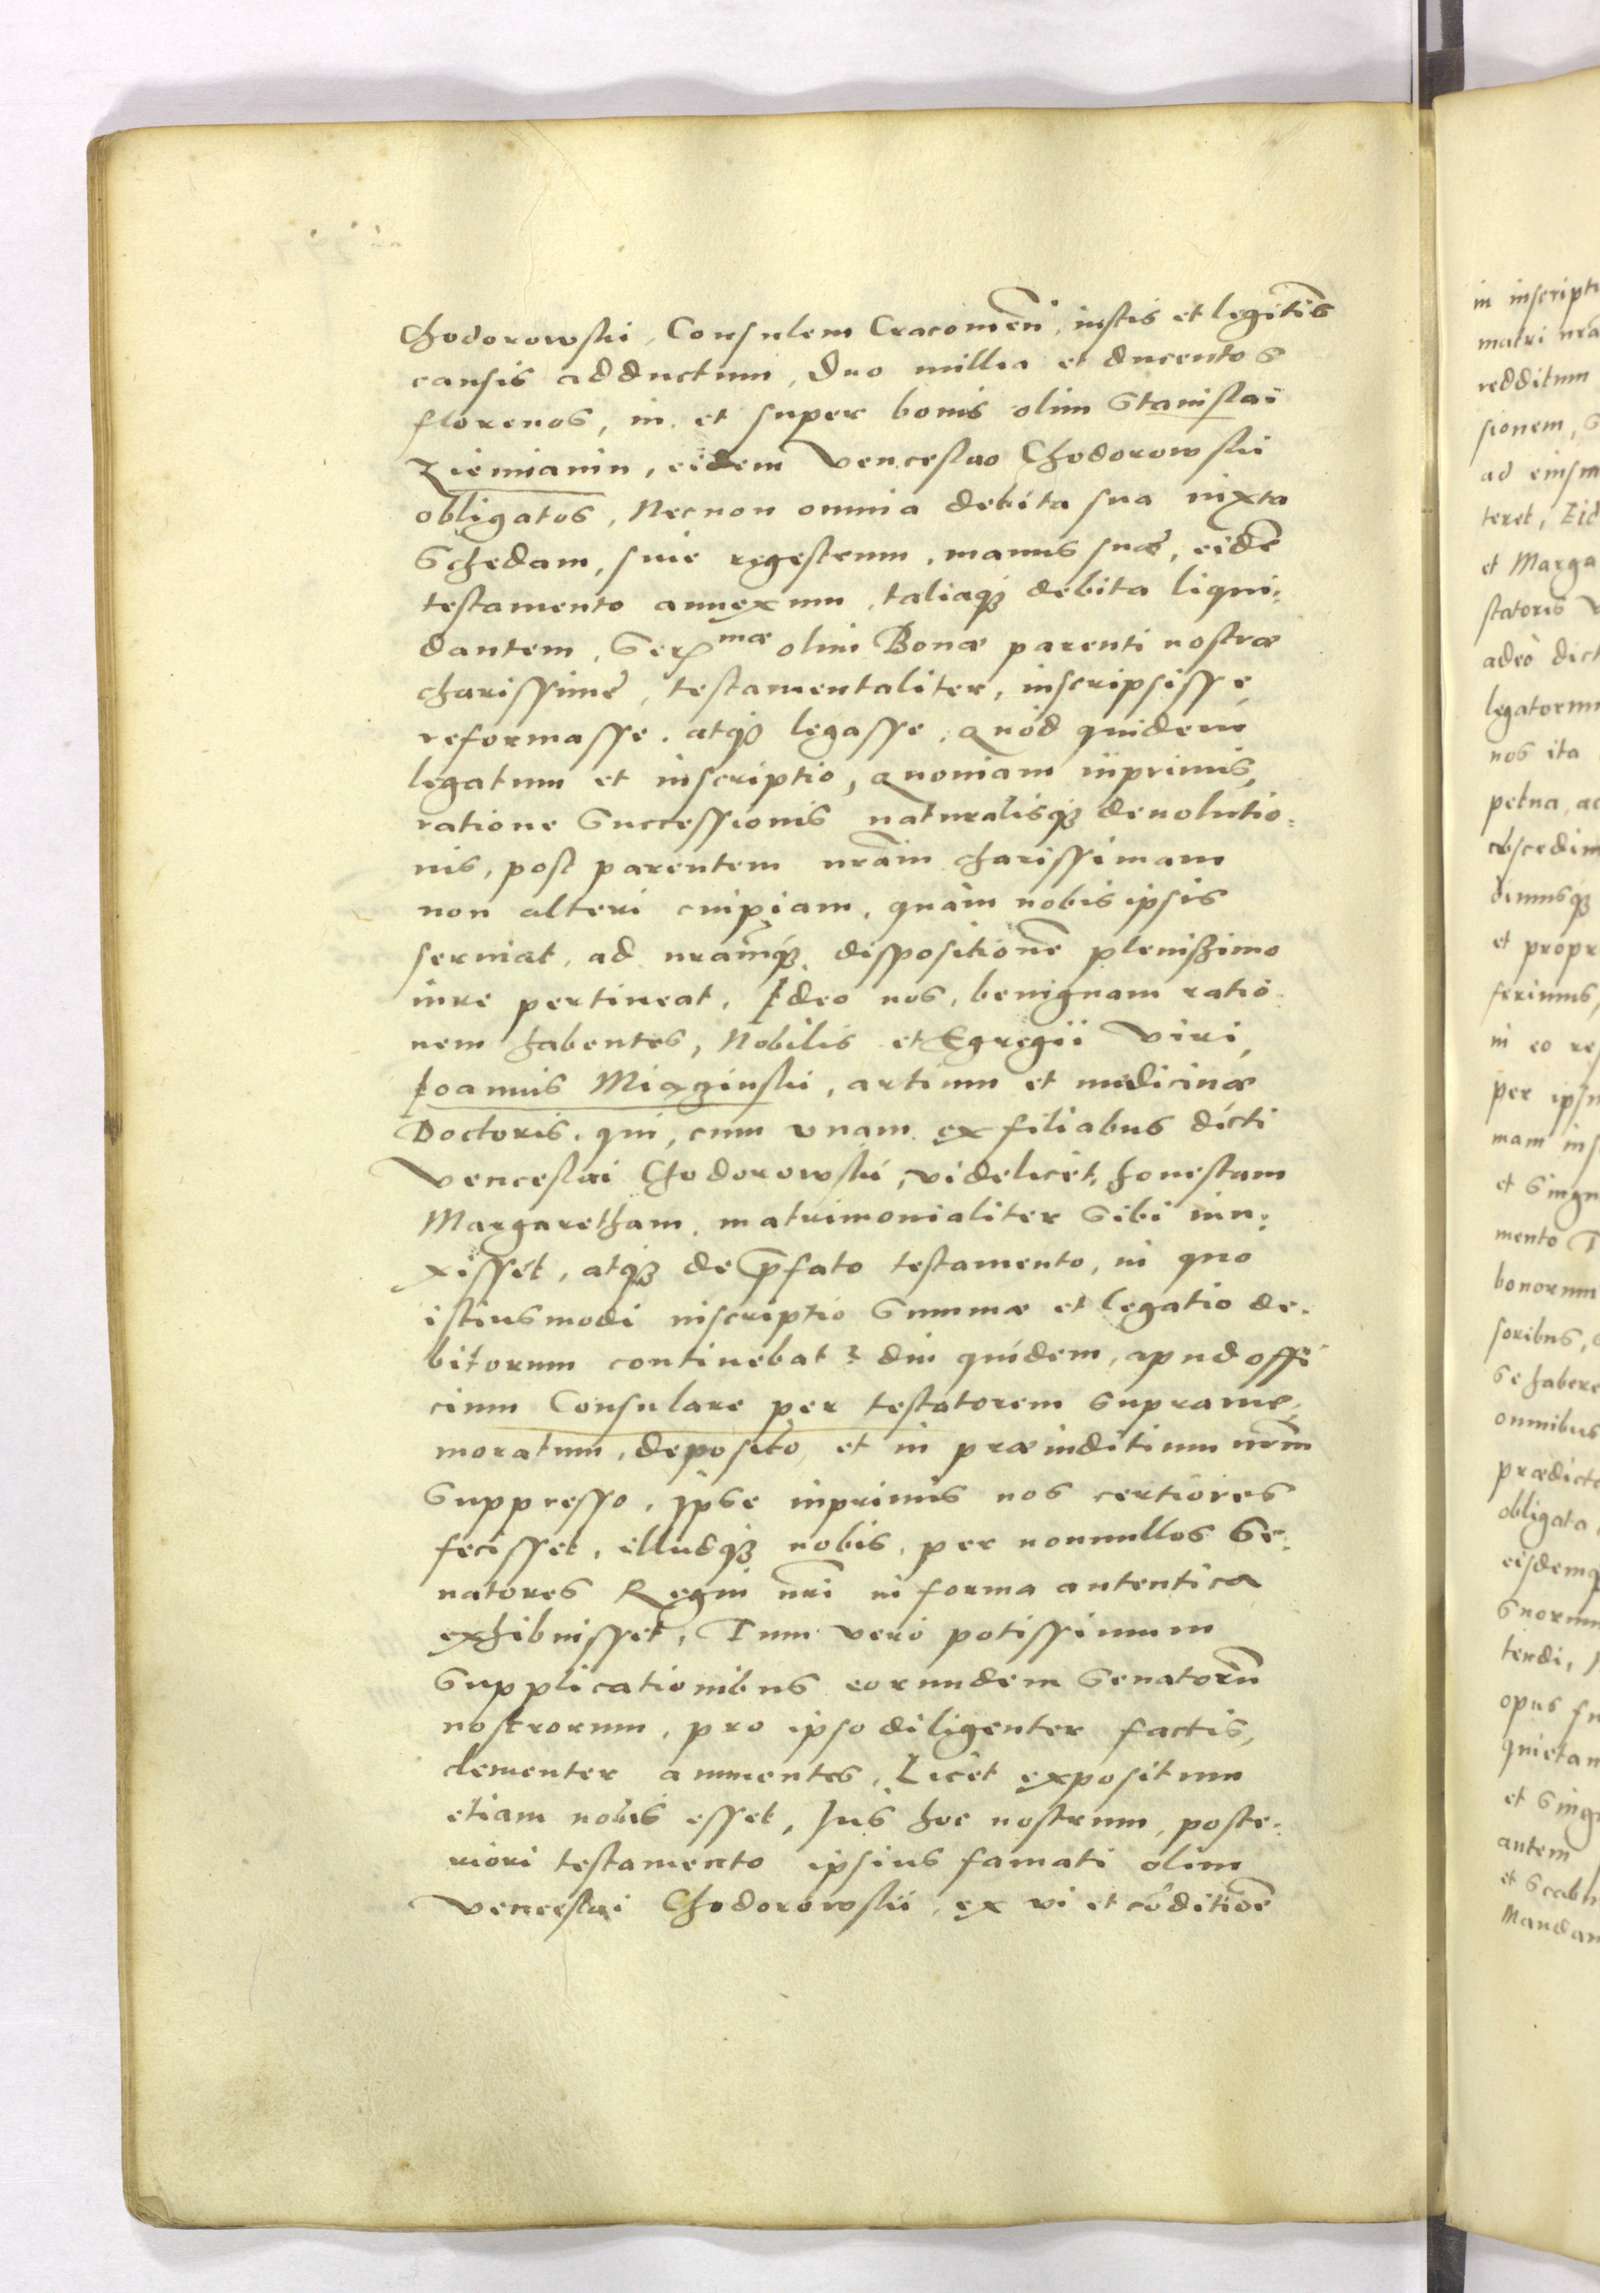 Chodorowski, Consulem Cracovien̄, iustis et legitīs
causis adductum, Duo millia et ducentos
florenos, in et super bonis olim Stanislai
Ziemianin, eidem Venceslao Chodorowski
obligatos, Necnon omnia debita sua iuxta
Schedam, siue regestrum, manus suæ, eidē
testamento annexum, taliaq3 debita liqui:
dantem, Ser.mæ olim Bonæ parenti nostræ
charissimę, testamentaliter, inscripsisse,
reformasse, atq3 legasse, Quòd quidem
legatum et inscriptio, Quoniam inprimis,
ratione Successionis naturalisq3 deuolutio:
nis, post parentem nrām charissimam
non alteri cuipiam, quàm nobis ipsis
seruiat, ad nrāmq3 dispositionē plenißimo
iure pertineat, Ideo nos, benignam ratio
nem habentes, Nobilis et Egregii Viri,
Ioannis Miączinski, artium et medicinæ
Doctoris, qui, cum vnam ex filiabus dicti
Venceslai Chodorowski, videlicèt, honestam
Margaretham, matrimonialiter sibi iun:
xissèt, atq3 de p̄fato testamento, in quo
istiusmodi inscriptio Summæ et legatio de:
bitorum continebatr diu quidem, apud offi
cium Consulare per testatorem suprame:
moratum, deposito, et in præiuditium nrm̄
Suppresso, Ipse inprimis nos certiores
fecisset, illudq3 nobis, per nonnullos Se:
natores Regni nrī in forma autentica
exhibuisset, Tum verò potissimum
Supplicationibus eorundem Senatorū
nostrorum, pro ipso diligenter factis,
clementer annuentes, Licèt expositum
etiam nobis esset, Ius hoc nostrum, poste:
riori testamento ipsius famati olim
Venceslai Chodorowski, ex vi et cōditiōe
in inscripti
matri nrā
redditum
sionem, S
ad eiusm
teret, Eid
et Marga
statoris V
adeò dict
legatorum
nos ita
petua, ac
cōscedim
dimusq3
et propr
ferimus,
in eo res
per ipsu
mam ins
et Singu
mento T
bonorum
soribus,
se habere
omnibus
prædicto
obligata,
eisdemq
Suorum
tendi,
opus fu
quietan
et Singu
autem
et Scabi
Mandam